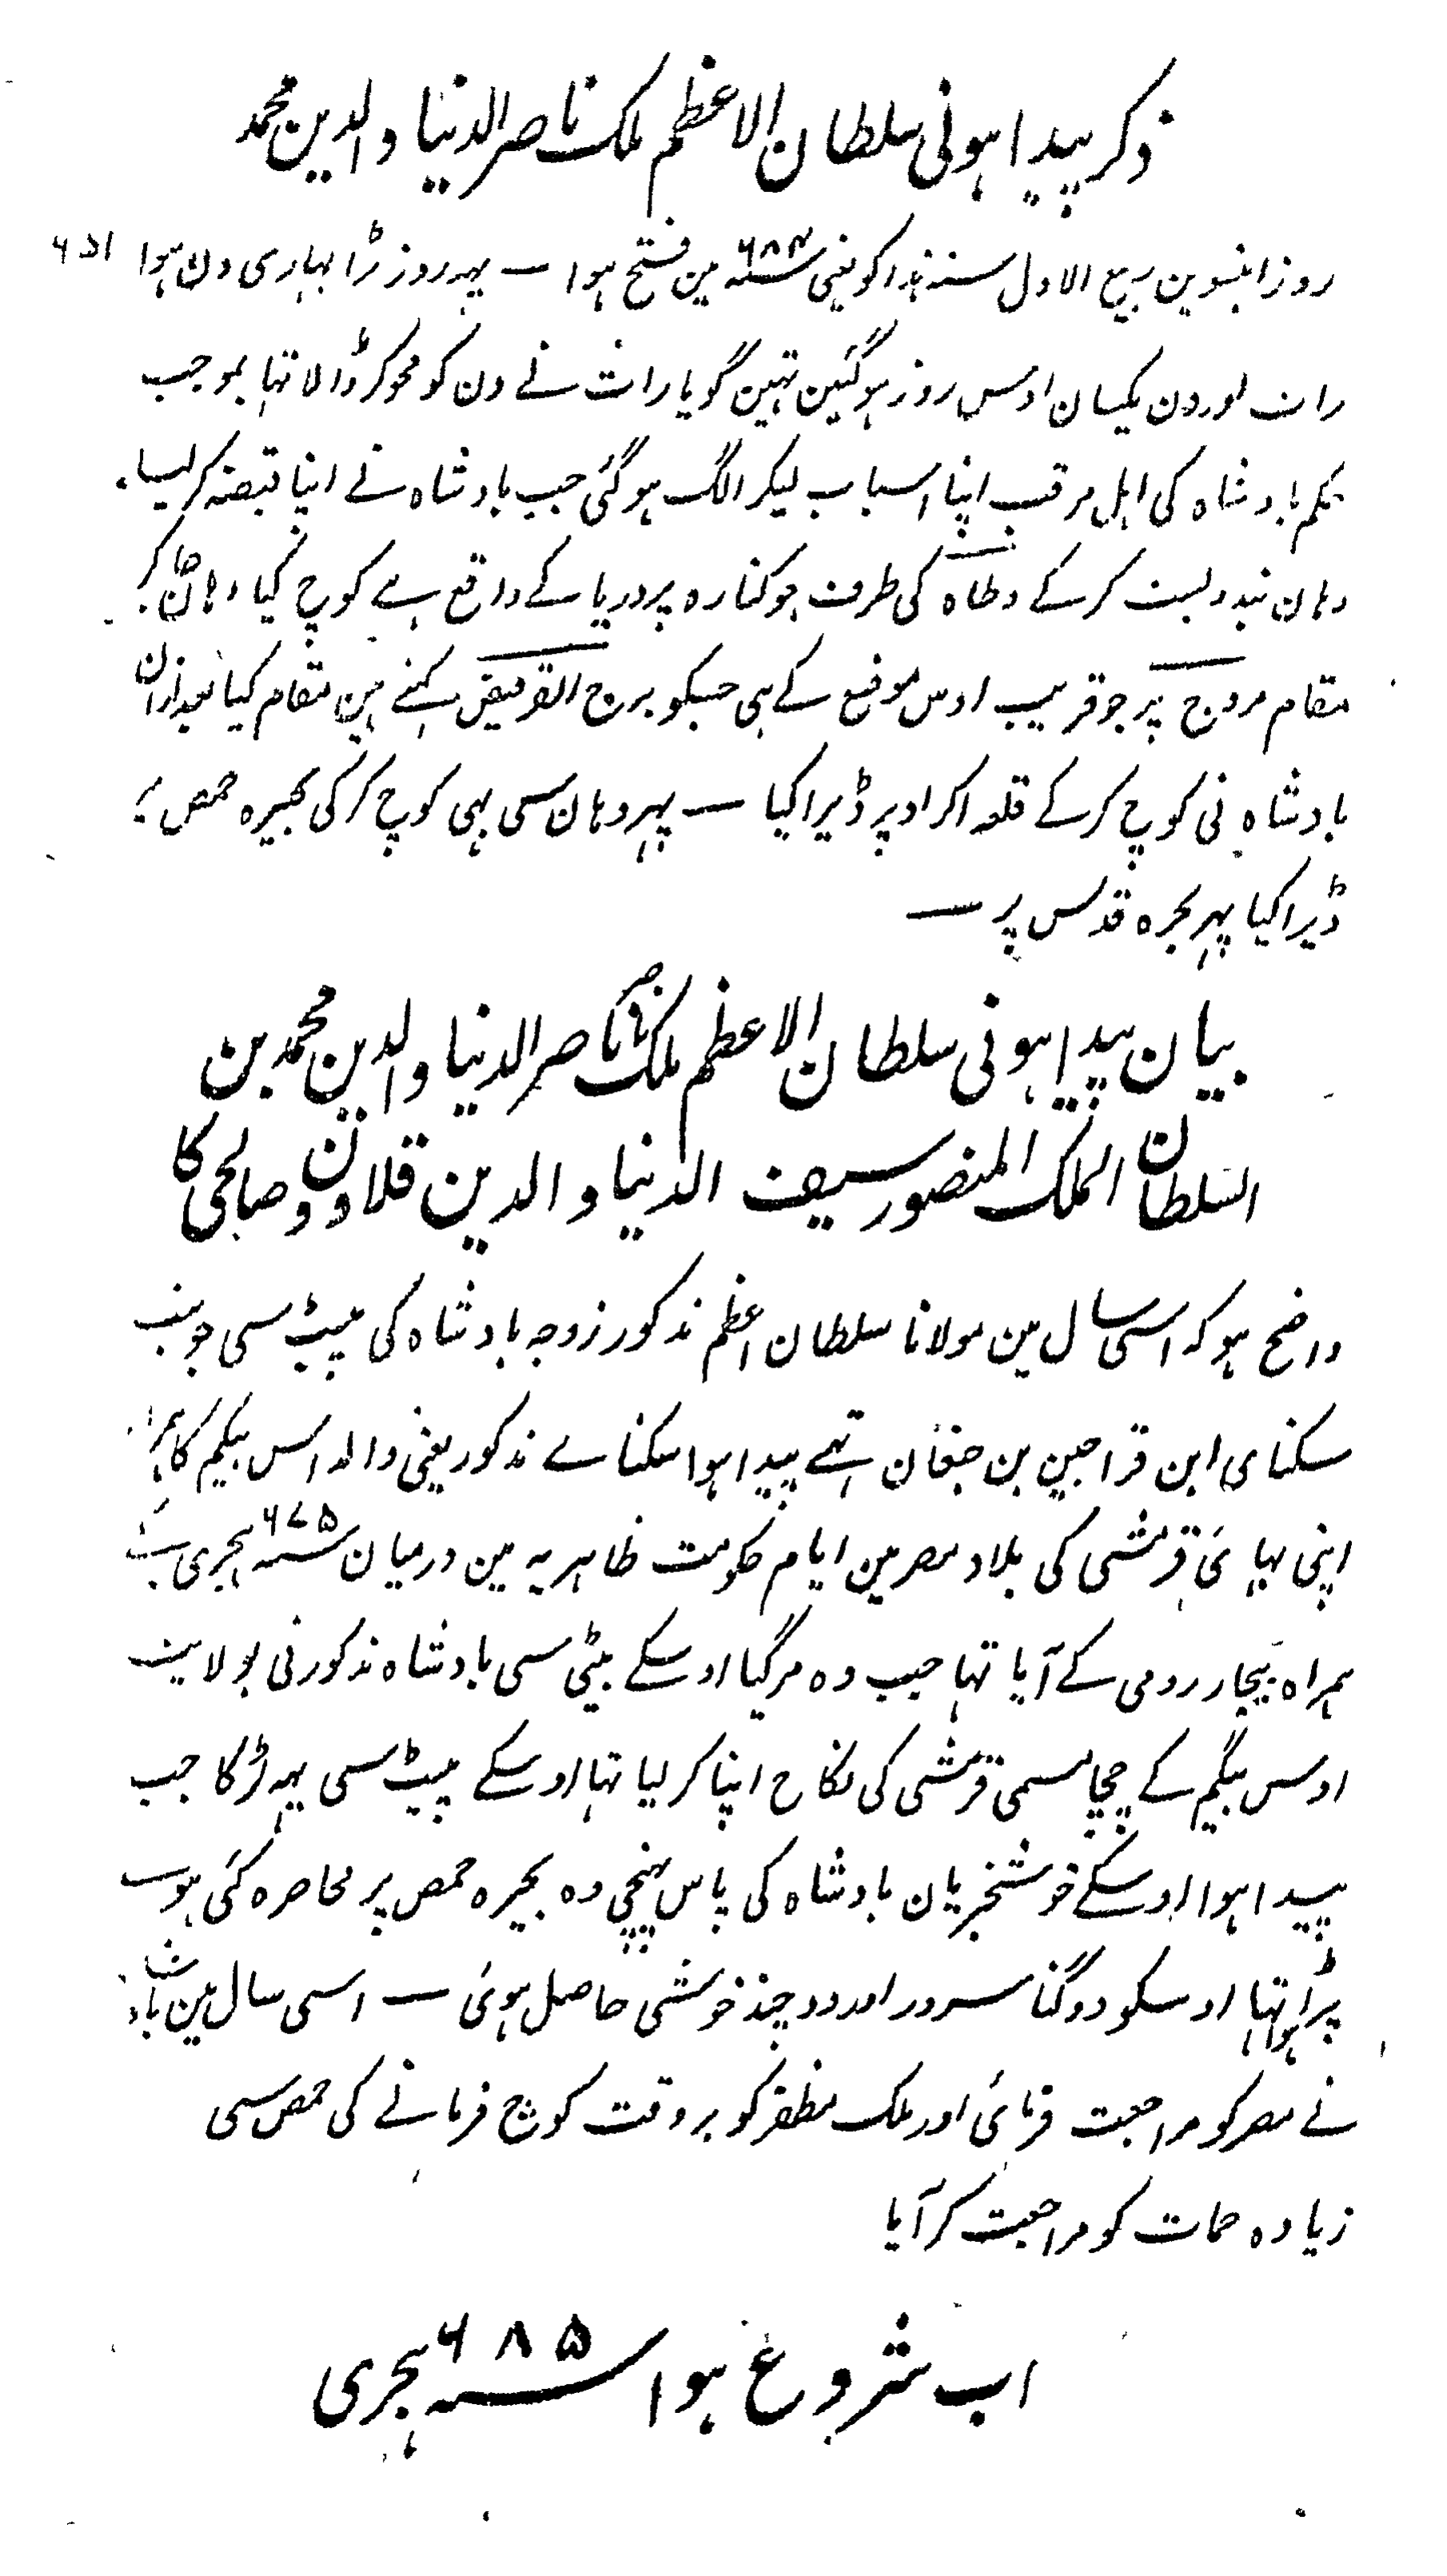 ذکر پیدا ہونی سلطان الاعظم ملک ناصر الدنیا والدین محمد
روز انیسوین ربیع الاول سنہ ہذا کو یعنی سنہ ۶۸۴ مین فتح ہوا — یہہ روز بڑا بہاری دن ہوا ۶۵۱
رات اور دن یکسان اوس روز ہو گئین تہین گویا رات نے دن کو محو کر ڈالا تہا بموجب
حکم بادشاہ کی اہل مرقب اپنا اسباب لیکر الگ ہو گئی جب بادشاہ نے اپنا قبضہ کر لیا
وہان بندوبست کر کے وطاہ کی طرف جو کنارہ پر دریا کے واقع ہے کوچ کیا وہان جا کر
مقام مروج پر جو قریب اوس موضع کے ہی جسکو برج القرفیض کہتے ہین مقام کیا بعد ازان
بادشاہ نی کوچ کر کے قلعہ اکراد پر ڈیرا کیا — پہر وہان سی بہی کوچ کر کی بحیرہ حمص پر
ڈیرا کیا پہر بحرہ قدس پر —
بیان پیدا ہونی سلطان الاعظم ملک ناصر ناصر الدنیا والدین محمد بن
السلطان الملک المنصور سیف الدنیا والدین قلاوون صالحی کا
واضح ہو کہ اسی سال مین مولانا سلطان اعظم مذکور زوجہ بادشاہ کی پیٹ سی جو بنت
سکنای ابن قراجین بن جنغان تہے پیدا ہوا سکناے مذکور یعنی والد اس بیگم کا ہمراہ
اپنی بہائی قرمشی کی بلاد مصر مین ایام حکومت ظاہریہ مین درمیان سنہ ۶۷۵ ہجری کے
ہمراہ بیجار رومی کے آیا تہا جب وہ مر گیا اوسکے بیٹی سی بادشاہ مذکور نی بولایت
اوس بیگم کے چچا مسمی قرمشی کی نکاح اپنا کر لیا تہا اوسکے پیٹ سی یہہ لڑکا جب
پیدا ہوا اوسکے خوشخبریان بادشاہ کی پاس پہنچی وہ بحیرہ حمص پر محاصرہ کئی ہوے
پڑا ہوا تہا اوسکو دوگنا سرور اور دو چند خوشی حاصل ہوئی — اسی سال مین بادشاہ
نے مصر کو مراجعت فرمائی اور ملک مظفر کو بر وقت کوچ فرمانے کی حمص سی
زیادہ حمات کو مراجعت کر آیا
اب شروع ہوا سنہ ۶۸۵ ہجری